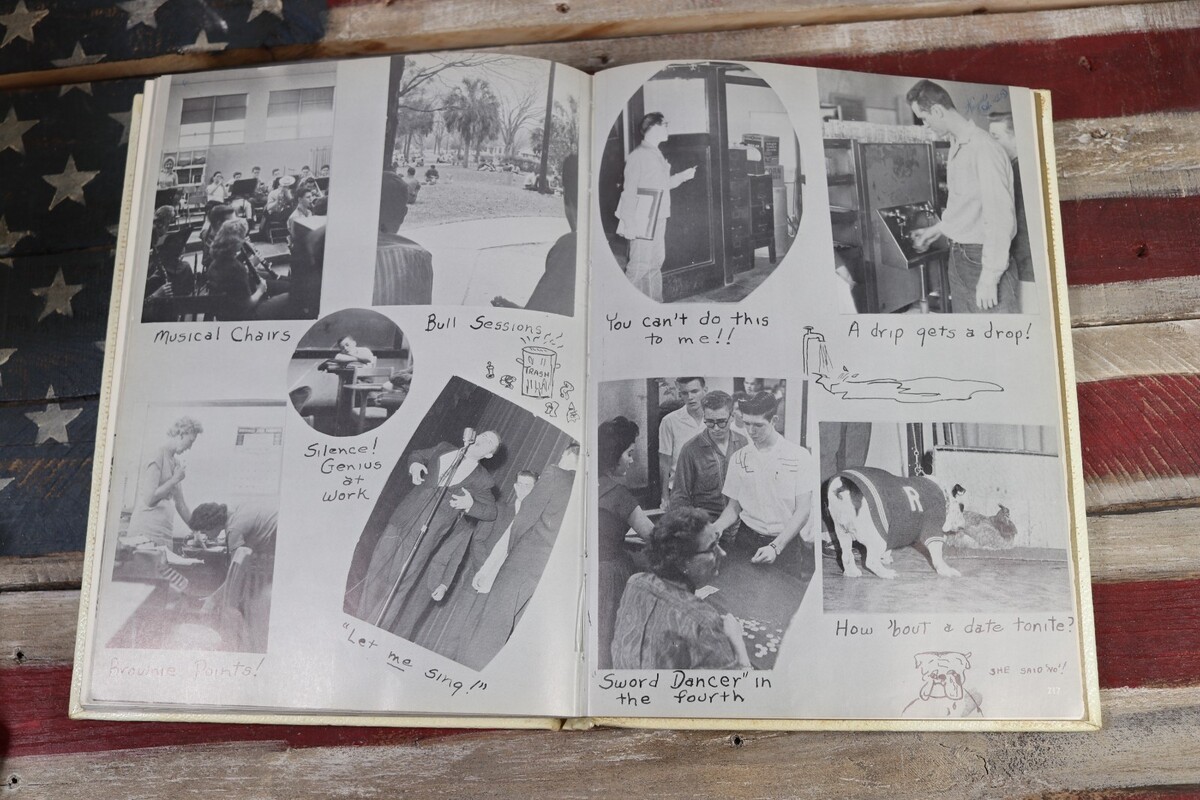 Musical Chairs
Bull Sessions
TRASH
Silence!
Genius
at
Work
Brownie Points!
"Let me sing!"
You can't do this
to me!!
A drip gets a drop!
Sword Dancer" in
the fourth
R
How 'bout a date tonite?
SHE SAID 'NO'!
217